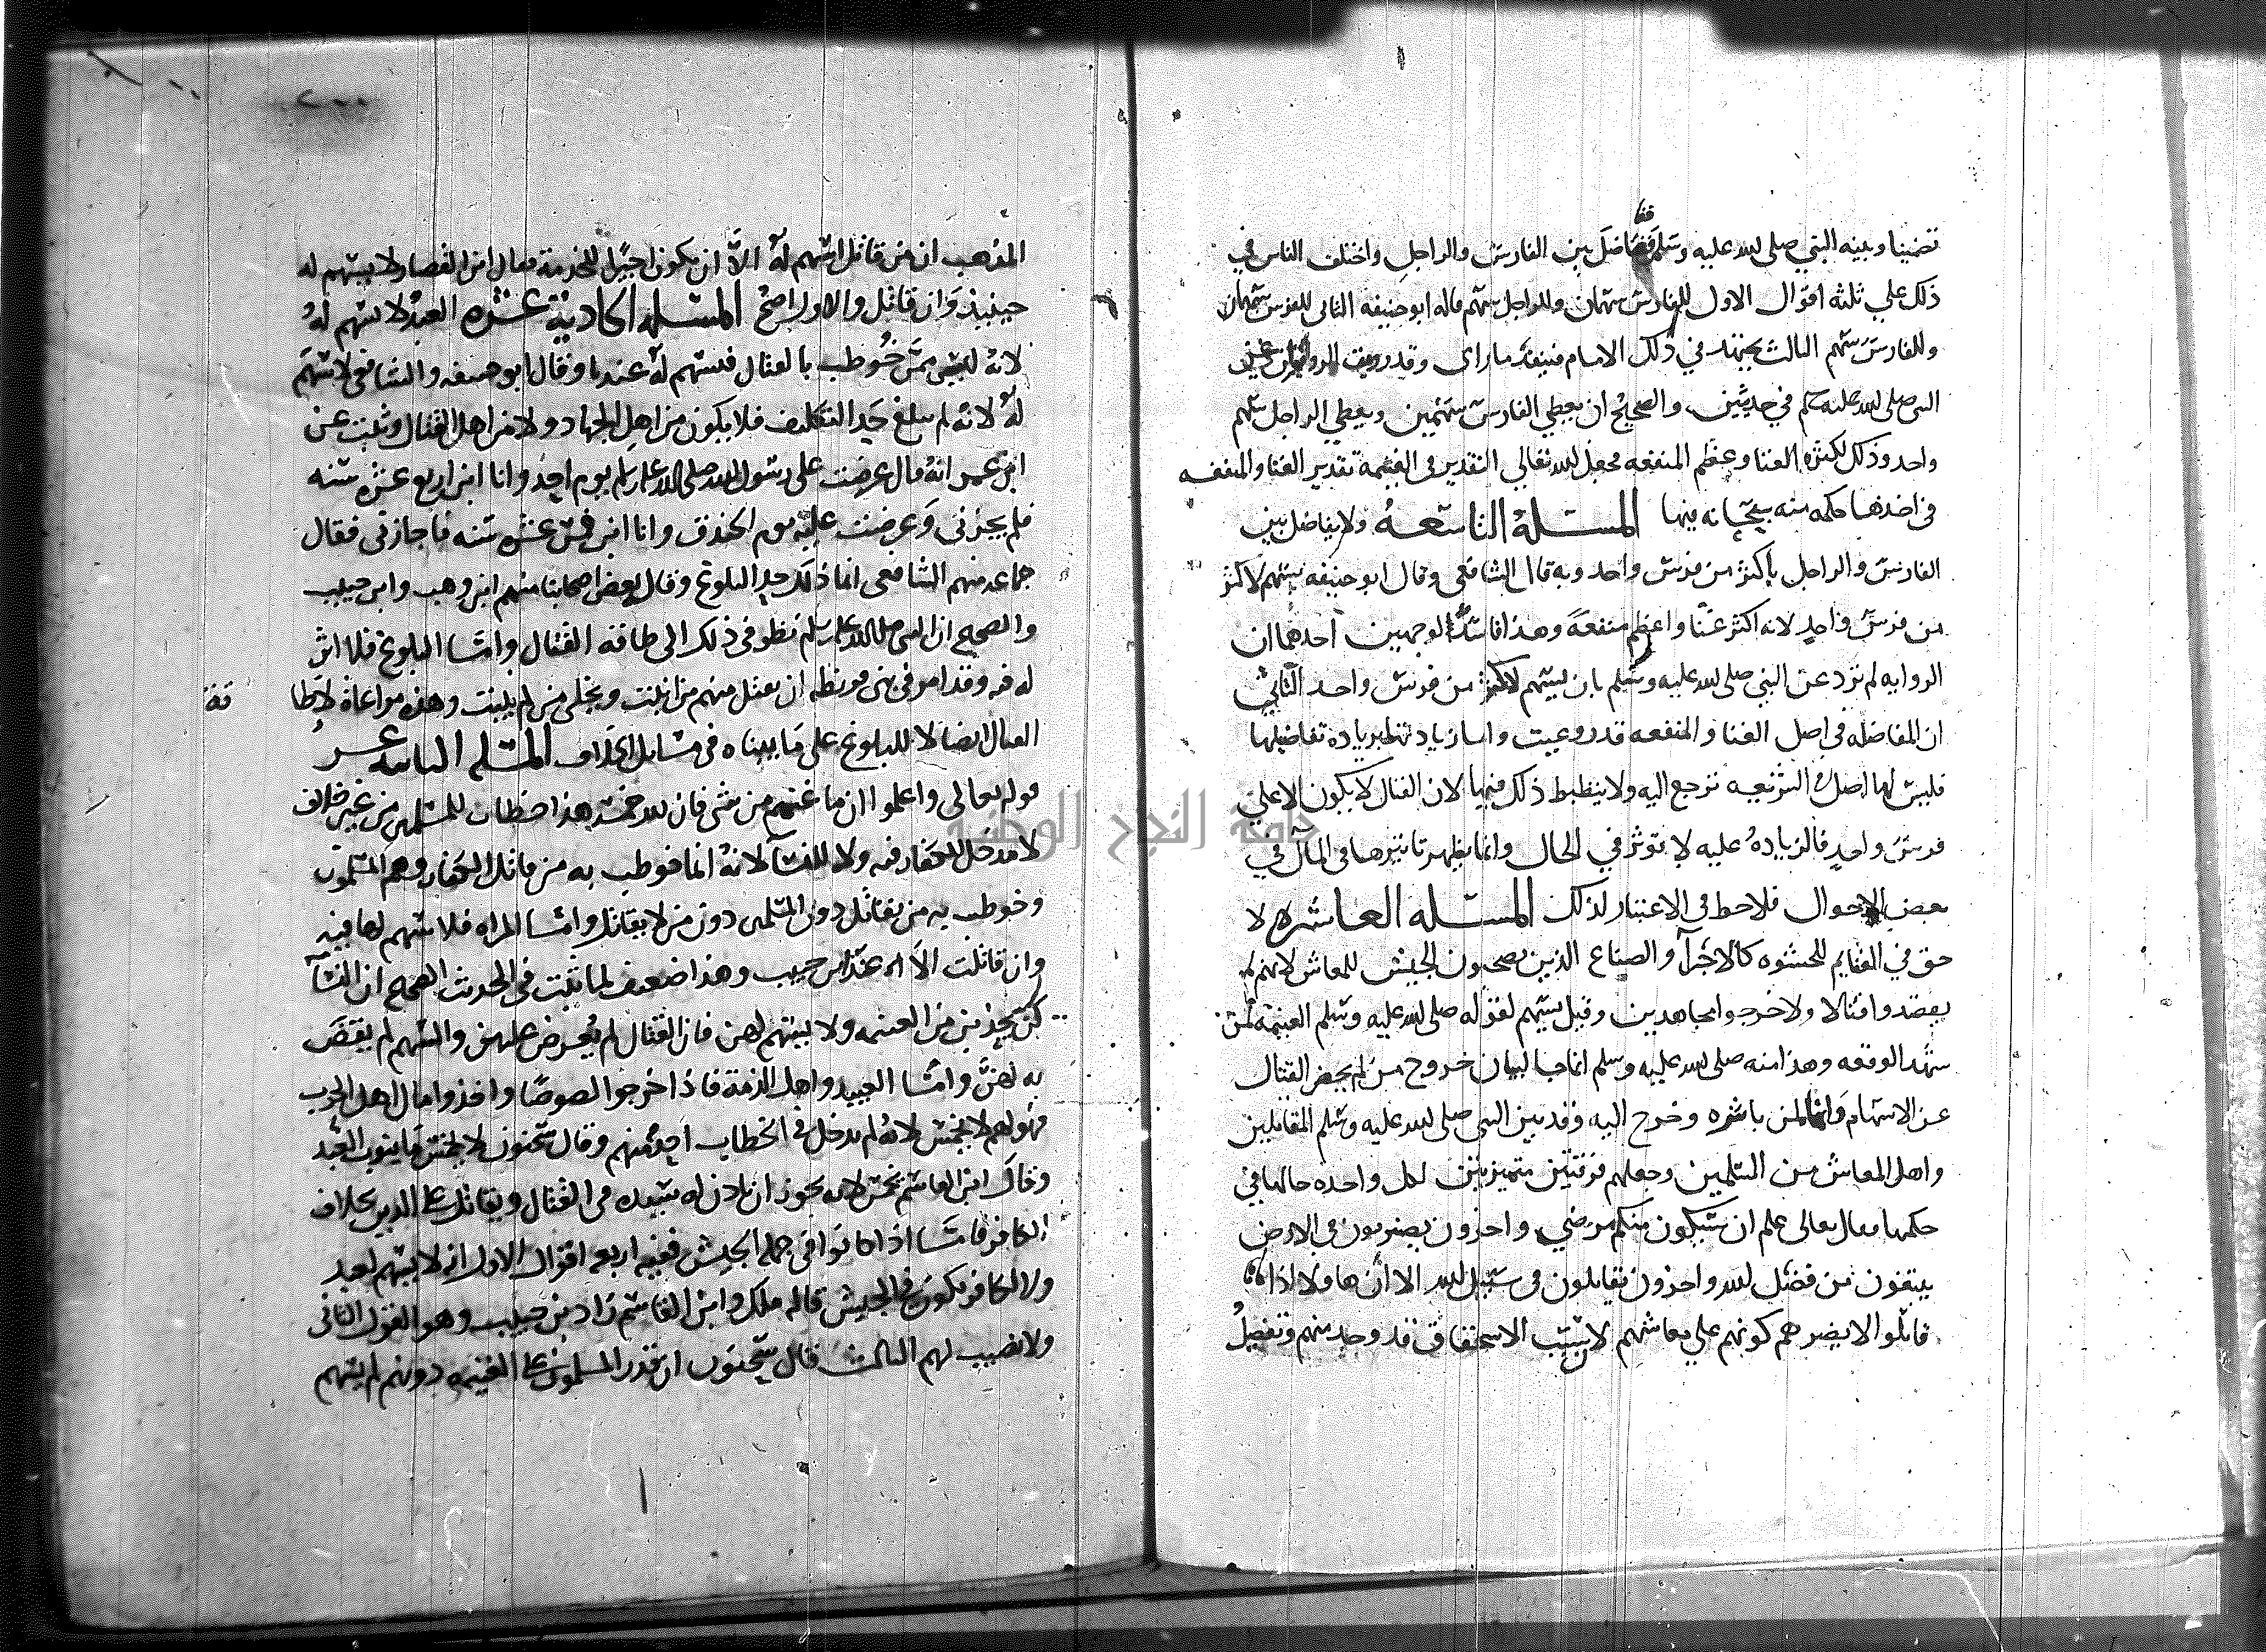 فقا
تضينا وبينه النبي صلى الله عليه وسلم ففاضل بين الفارس والراجل واختلف الناس في
ذلك علي ثلثة اقوال الاول للفارس سهمان وللراجل سهم قاله ابو حنيفه الثاني للفرس سهمان
وللفارس سهم الثالث يجتهد في ذلك الامام فينفذ ما راى وقد رويت الروايتان عن
النبي صلى الله عليه وسلم في حديثين والصحيح ان يعطي الفارس سهمين ويعطي الراجل سهم
واحد وذلك لكثرة العنا وعظم المنفعه فجعل الله تعالي التقدير في الغنيمة تقدير العنا والمنفعه
في اخذها حكمه منه سبحانه فيها المسئلة التاسعة ولا يفاضل بين
الفارس والراجل باكثر من فرس واحد وبه قال الشافعي وقال ابو حنيفه يسهم لاكثر
من فرس واحد لانه اكثر عنا واعظم منفعة وهذا فاسد لوجهين احدهما ان
الروايه لم ترد عن النبي صلى الله عليه وسلم بان يسهم لاكثر من فرس واحد الثاني
ان المفاضله في اصل العنا والمنفعه قد روعيت واما زياد تها بزيادة تفاضيلها
فليس لها اصل في الشريعه ترجع اليه ولا ينظبط ذلك فيها لان القتال لا يكون الا على
فرس واحد فالزيادة عليه لا توثر في الحال وانما يظهر تاثيرها في المآل في
بعض الاحوال فلا حظ في الاعتبار لذلك المسئله العاشره لا
حق في الغنايم للحشوه كالاجرآ والصناع الذين يصحبون الجيش للمعاش لانهم لم
يقصدوا قتالا ولا خرجوا مجاهدين وقيل يسهم لقوله صلى الله عليه وسلم الغنيمة لمن
شهد الوقعه وهذا منه صلى الله عليه وسلم انما جا لبيان خروج من لم يحضر القتال
عن الاسهام وانما لمن باشره وخرج اليه وقد بين النبي صلى الله عليه وسلم المقاتلين
واهل المعاش من المسلمين وجعلهم فرقتين متميزتين لكل واحده حالها في
حكمها فقال تعالى علم ان سيكون منكم مرضي واخرون يضربون في الارض
يبتغون من فضل الله واخرون يقاتلون في سبيل الله الا ان هاولا اذا
قاتلوا لا يضرهم كونهم علي معاشهم لان سبب الاستحقاق قد وجد منهم وتفصيل
المذهب ان من قاتل اسهم له الا ان يكون اجيرا للخدمة فقال ابن القصار لا يسهم له
حينيذ وان قاتل والاول اصح المسئله الحادية عشره العبد لا يسهم له
لانه ليس ممن خوطب بالقتال فسهم له عندنا وقال ابو حنيفه والشافعي لا سهم
له لانه لم يبلغ حد التكليف فلا يكون من اهل الجهاد ولا من اهل القتال وثبت عن
ابن عمر انه قال عرضت على رسول الله صلى الله عليه وسلم يوم احد وانا ابن اربع عشره سنه
فلم يجزني وعرضت عليه يوم الخندق وانا ابن خمس عشره سنه فاجازني فقال
جماعه منهم الشافعي انما ذلك حد البلوغ وقال بعض اصحابنا منهم ابن وهب وابن حبيب
والصحيح ان النبي صلى الله عليه وسلم نظر في ذلك الى طاقة القتال واما البلوغ فلا اثر
له فيه وقد امر في بني قريظه ان يقتل منهم من انبت ويخلى من لم ينبت وهذه مراعاة لاطا
قة
القتال ايضا لا للبلوغ على ما بيناه في مسائل الخلاف المسئله الثانيه عشر
قوله تعالى واعلموا ان ما غنمتم من شي فان لله خمسه هذا خطاب للمسلمين من غير خلاف
لا مدخل للكفار فيه ولا للنسآ لانه انما خوطب به من قاتل الكفار وهم المسلمون
وخوطب به من يقاتل دون المسلمين دون من لا يقاتل واما المراه فلا سهم لها فيه
وان قاتلت الا عند ابن حبيب وهذا ضعيف لما ثبت في الحديث الصحيح ان النسآ
كن يحذين من الغنيمه ولا يسهم لهن فان القتال لم يفرض عليهن والسهم لم يقض
به لهن واما العبيد واهل الذمة فاذا خرجوا لصوصا واخذوا مال اهل الحرب
فهو لهم لا يخمس لانه لم يدخل في الخطاب احد منهم وقال سحنون لا يخمس ما ينوب العبد
وقال ابن القاسم يخمس لانه يجوز ان ياذن له سيده في القتال ويقاتل على الدين بخلاف
الكافر فاما اذا كانوا في جملة الجيش ففيه اربعه اقوال الاول انه لا يسهم لعبد
ولا لكافر يكون في الجيش قاله ملك وابن القاسم زاد بن حبيب وهو القول الثاني
ولا نصيب لهم الثالث قال سحنون ان قدر المسلمون على الغنيمه دونهم لم يسهم
جامعة النجاح الوطنية